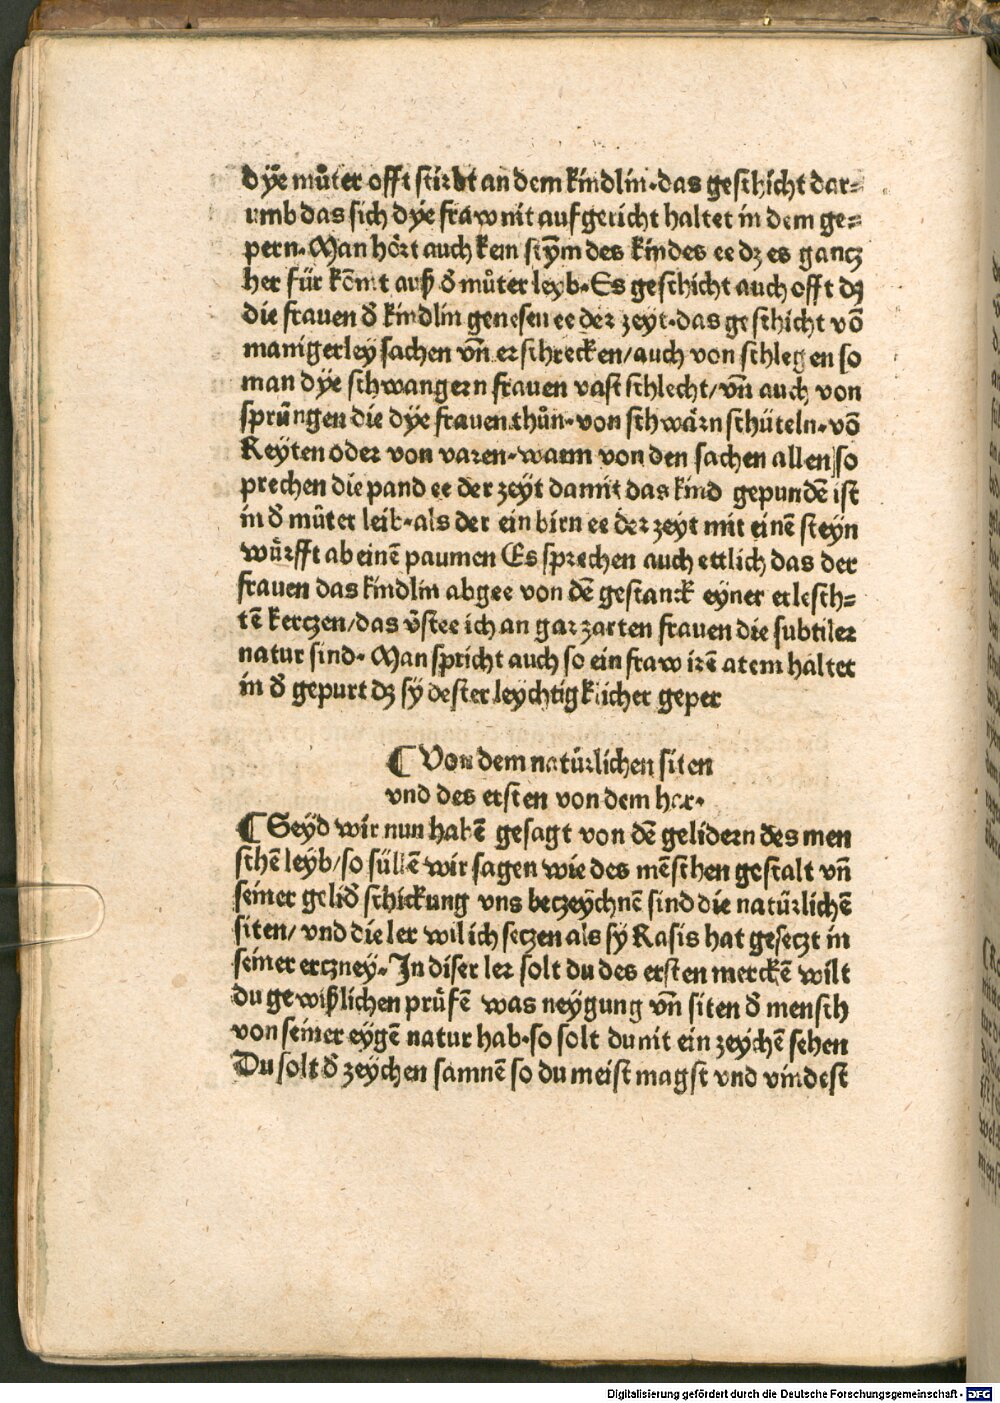 dÿe můter offt stirbt an dem kindlin·das geschicht dar⸗
umb das sich dÿe fraw nit aufgericht haltet in dem ge⸗
pern·Man hört auch kein stÿm̄ des kindes ee dz es gancz
her für kōmt auß d̄ můter leyb·Es geschicht auch offt dz
die frauen d̄ kindlin genesen ee der zeyt·das geschicht vō
manigerley sachen vn̄ erschrecken/auch von schlegen so
man dÿe schwangern frauen vast schlecht/vn̄ auch von
sprüngen die dÿe frauen thůn·von schwärn schüteln·vō
Reÿten oder von varen·wann von den sachen allen so
prechen die pand ee der zeÿt damit das kind gepundē ist
in d̄ můter leib·als der ein birn ee der zeyt mit einē steyn
würfft ab einē paumen Es sprechen auch ettlich das der
frauen das kindlin abgee von dē gestanck eyner erlesch⸗
tē kerczen/das v̄stee ich an gar zarten frauen die subtiler
natur sind·Man spricht auch so ein fraw irē atem haltet
in d̄ gepurt dz sÿ dester leychtigklicher geper
¶ Von dem natürlichen siten
vnd des ersten von dem har·
¶ Seÿd wir nun habē gesagt von dē gelidern des men
schē leyb/so süllē wir sagen wie des mēschen gestalt vn̄
seiner gelid̄ schickung vns beczeÿchnē sind die natürlichē
siten/vnd die ler wil ich seczen als sÿ Rasis hat geseczt in
seiner erczney·In diser ler solt du des ersten merckē wilt
du gewißlichen prüfē was neÿgung vn̄ siten d̄ mensch
von seiner eÿgē natur hab·so solt du nit ein zeÿchē sehen
Du solt d̄ zeÿchen samnē so du meist magst vnd vindest
Digitalisierung gefördert durch die Deutsche Forschungsgemeinschaft - DFG